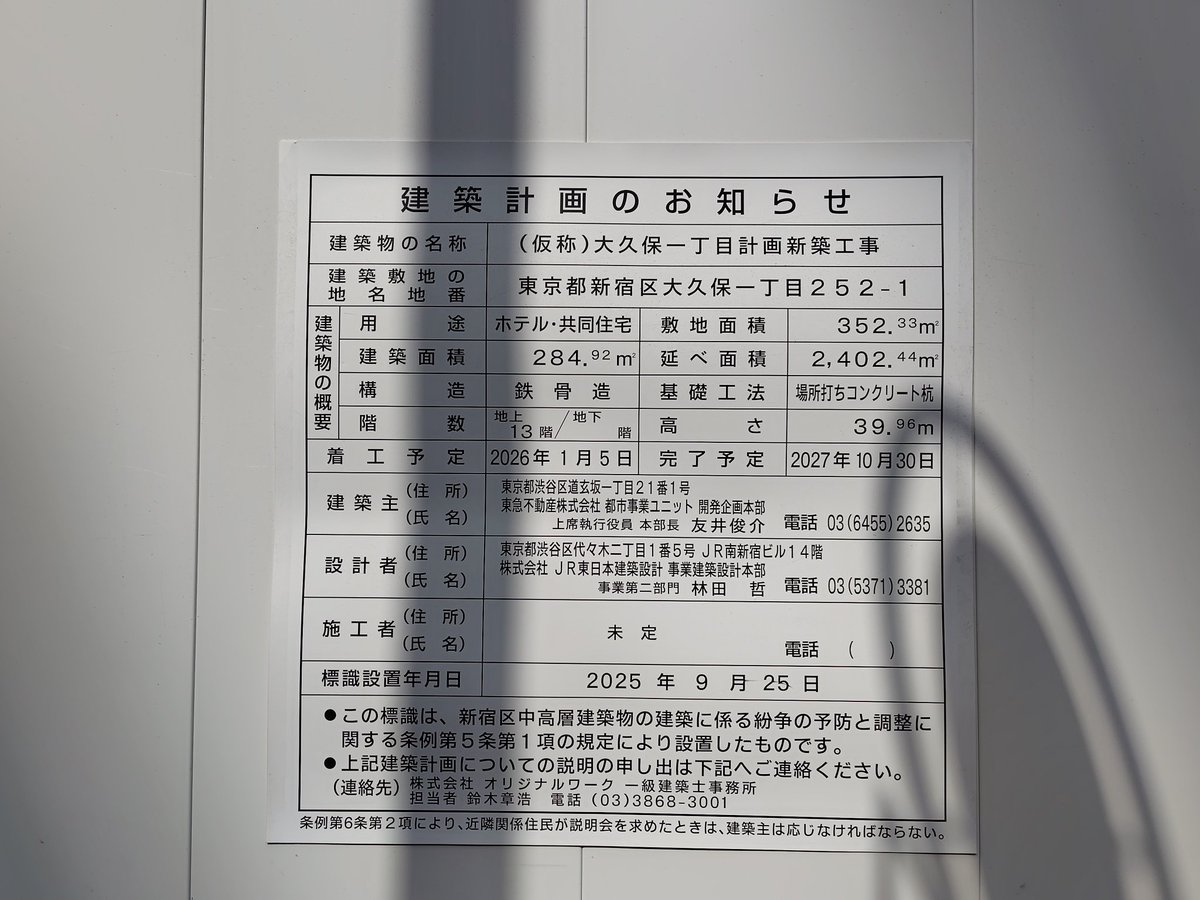 建築計画のお知らせ
建築物の名称 (仮称)大久保一丁目計画新築工事
建築敷地の地名地番 東京都新宿区大久保一丁目252-1
建築物の概要
用途 ホテル・共同住宅 敷地面積 352.33㎡
建築面積 284.92㎡ 延べ面積 2,402.44㎡
構造 鉄骨造 基礎工法 場所打ちコンクリート杭
階数 地上13階/地下 階 高さ 39.96m
着工予定 2026年1月5日 完了予定 2027年10月30日
建築主 (住所) 東京都渋谷区道玄坂一丁目21番1号
(氏名) 東急不動産株式会社 都市事業ユニット 開発企画本部
上席執行役員 本部長 友井俊介 電話 03(6455)2635
設計者 (住所) 東京都渋谷区代々木二丁目1番5号 JR南新宿ビル14階
(氏名) 株式会社 JR東日本建築設計 事業建築設計本部
事業第二部門 林田 哲 電話 03(5371)3381
施工者 (住所) (氏名) 未定 電話 ( )
標識設置年月日 2025年9月25日
●この標識は、新宿区中高層建築物の建築に係る紛争の予防と調整に
関する条例第5条第1項の規定により設置したものです。
●上記建築計画についての説明の申し出は下記へご連絡ください。
(連絡先) 株式会社 オリジナルワーク 一級建築士事務所
担当者 鈴木章浩 電話 (03)3868-3001
条例第6条第2項により、近隣関係住民が説明会を求めたときは、建築主は応じなければならない。